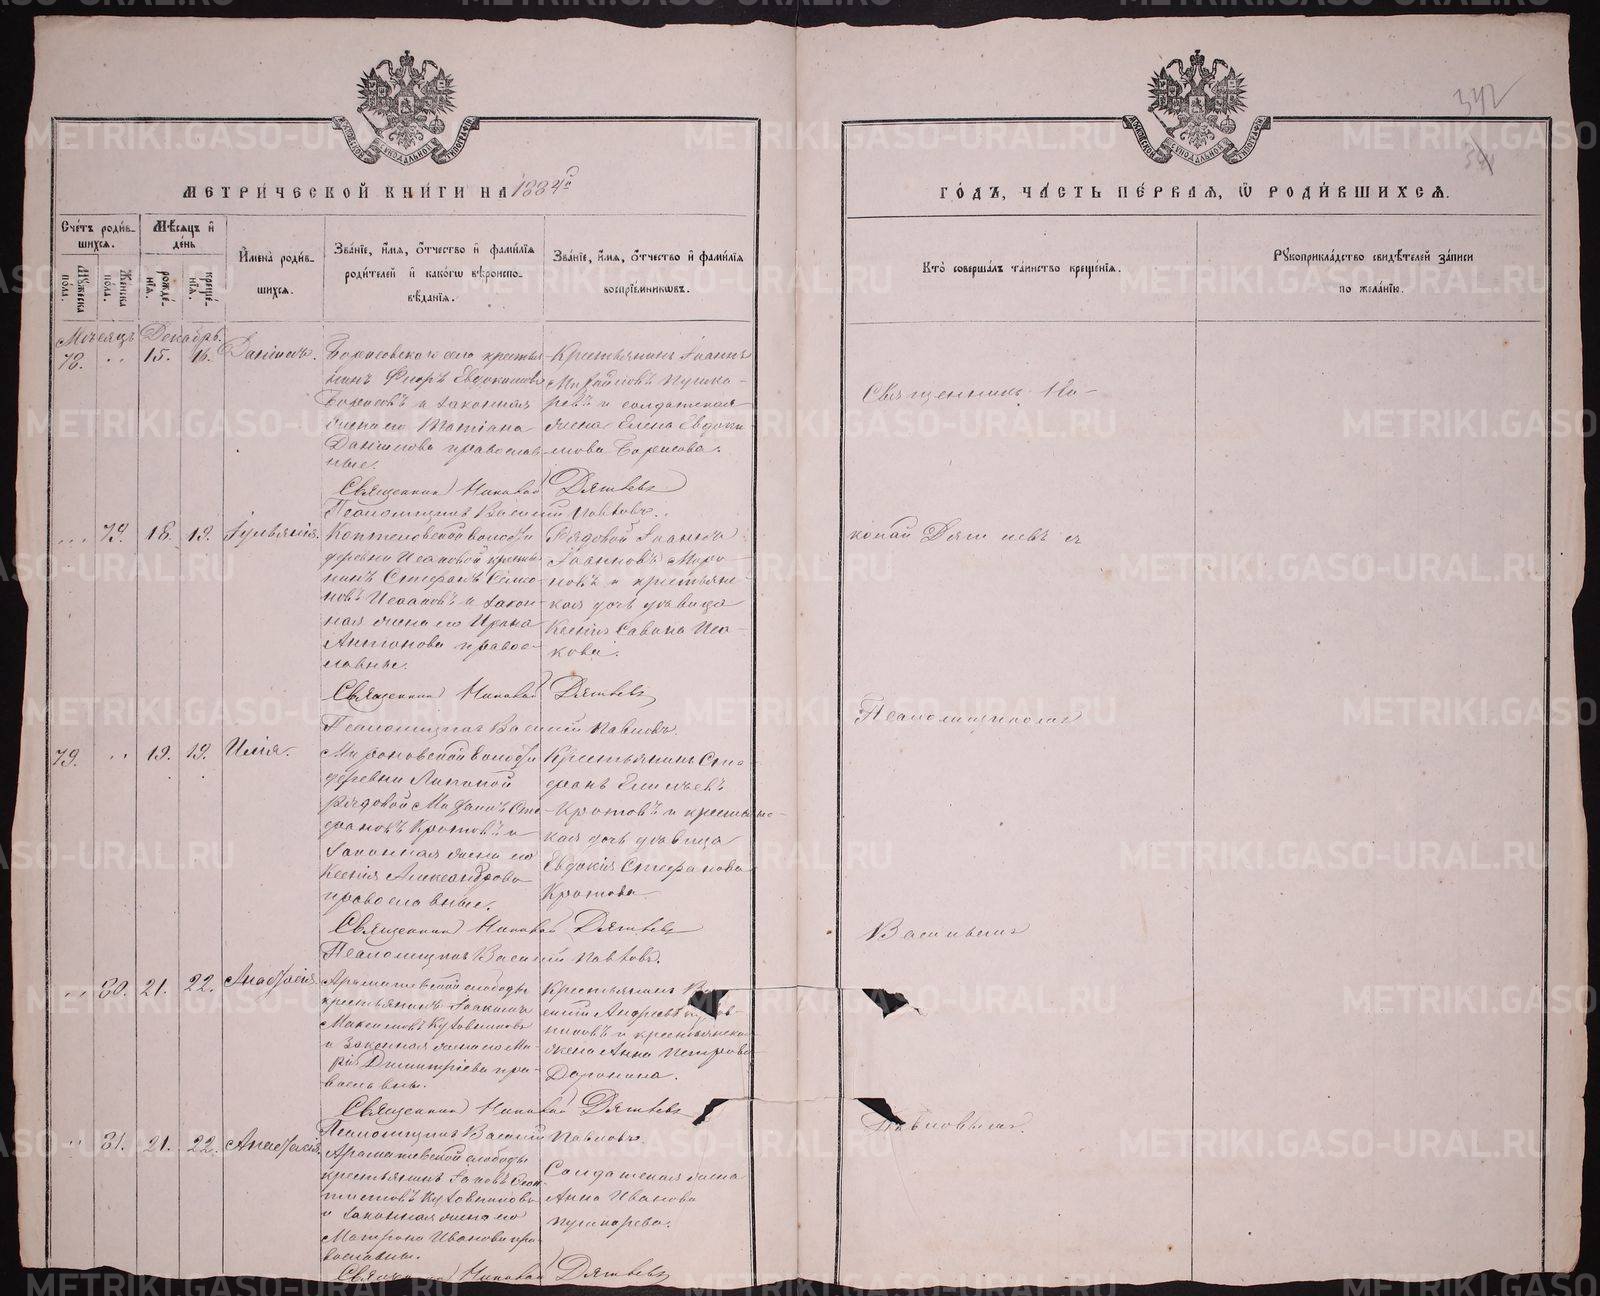 342
МЕТРИЧЕСКОЙ КНИГИ НА 1884й
ГОДЪ, ЧАСТЬ ПЕРВАЯ, Ѡ РОДИВШИХСЯ.
Счетъ родившихся.
Мужеска пола.
Женска пола.
Мѣсяцъ и день
рожденія.
крещенія.
Имена родившихся.
Званіе, имя, отчество и фамилія родителей и какогѡ вѣроисповѣданія.
Званіе, имя, отчество и фамилія воспріемниковъ.
Кто совершалъ таинство крещенія.
Рукоприкладство свидѣтелей записи по желанію.
Месяцъ Декабрь.
78. 15. 16. Даніилъ.
Борисовскаго села крестья
нинъ Флоръ Евдокимовъ
Борисовъ и законная
жена его Татіана
Данилова православ
ные.
Крестьянинъ Іоаннъ
Михайловъ Пушка-
ревъ и солдатская
жена Елена Евдоки
мова Борисова.
Священникъ Николай Дягилевъ
Псаломщикъ Василій Павловъ.
79. 18. 19. Іуліанія.
Коптеловской волости
деревни Исаковой крестья
нинъ Стефанъ Симо
новъ Исаковъ и закон-
ная жена его Ирина
Антонова правос-
лавные.
Рядовой Іоаннъ
Іоанновъ Миро
новъ и крестьянс-
кая дочь девица
Ксенія Савина Иса-
кова.
Священникъ Николай Дягилевъ
Псаломщикъ Василій Павловъ.
79. 19. 19. Илія.
Мироновской волости
деревни Липиной
рядовой Михаилъ Сте
фановъ Кротовъ и
законная жена его
Ксенія Александрова
православные.
Крестьянинъ Сте-
фанъ
Кротовъ и крестьянс-
кая дочь девица
Евдокія Стефанова
Кротова.
Священникъ Николай Дягилевъ
Псаломщикъ Василій Павловъ.
80. 21. 22. Анастасія.
Арамашевской слободы
крестьянинъ Іоакимъ
Максимовъ
и законная жена его Ма-
рія Димитріева пра-
вославны.
Крестьянинъ Ва
силій Андреевъ
и крестьянска
жена Анна Петрова
Доронина.
Священникъ Николай Дягилевъ
Псаломщикъ Василій Павловъ.
81. 21. 22. Анастасія.
Арамашевской слободы
крестьянинъ Іаковъ
и законная жена его
Матрона Иванова пра-
вославны.
Солдатская жена
Анна Иванова
Пушкарева.
Священникъ Николай Дягилевъ
Священникъ Ни-
колай Дягилевъ съ
Псаломщикомъ
Васильемъ
Павловымъ.
METRIKI.GASO-URAL.RU